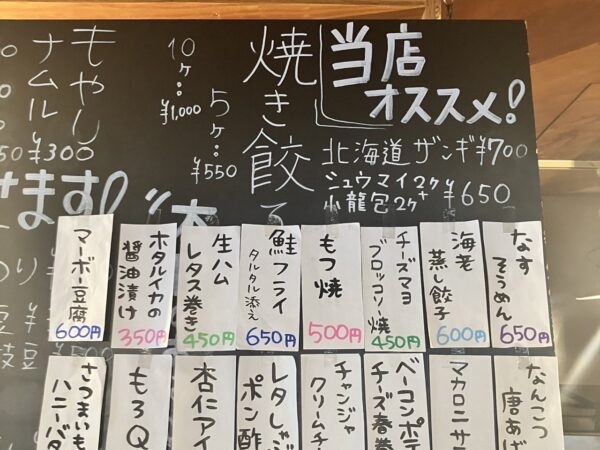 当店
オススメ!
北海道 ザンギ ¥700
シュウマイ2ケ
小龍包2ケ
¥650
焼き餃
5ケ:
¥550
10ケ:
¥1,000
もやし
ナムル
¥300
ます!
なす
そうめん
650円
海老
蒸し餃子
600円
チーズマヨ
ブロッコリー焼
450円
もつ焼
500円
鮭フライ
タルタル添え
650円
生ハム
レタス巻き
450円
ホタルイカの
醤油漬け
350円
マーボー豆腐
600円
なんこつ
唐あげ
マカロニサ
ベーコンポテ
チーズ春巻
チャンジャ
クリームチー
レタしゃぶ
ポン酢
杏仁アイ
もろQ
さつまいも
ハニーバタ